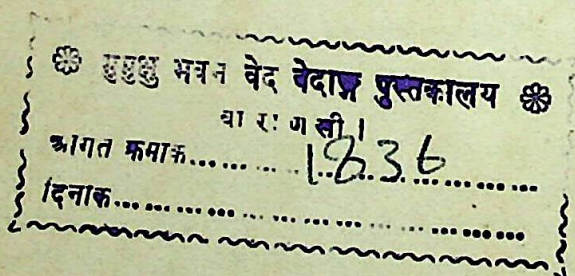 मुमुक्षु भवन वेद वेदाङ्ग पुस्तकालय
वाराणसी।
आगत क्रमाक......1836......
दिनाक......